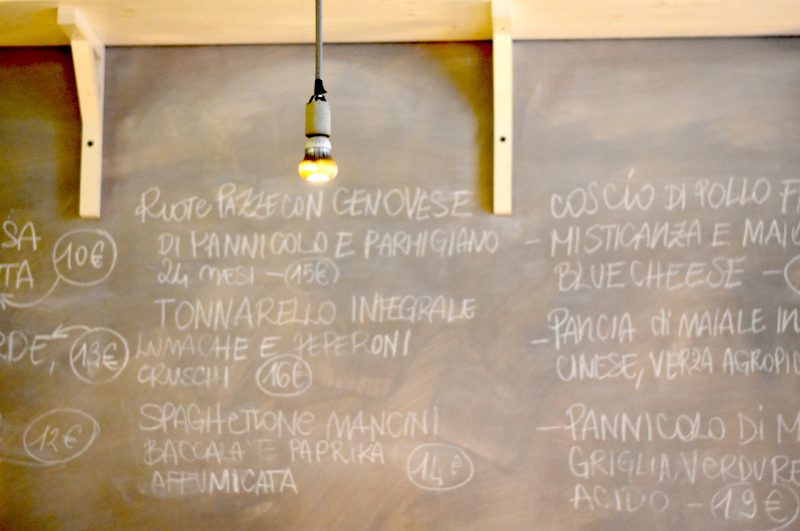 SA
TA 10€
RDE, 13€
12€
RUOTE PAZZE CON GENOVESE
DI PANNICOLO E PARMIGIANO
24 MESI - 15€
TONNARELLO INTEGRALE
LUMACHE E PEPERONI
CRUSCHI 16€
SPAGHETTONE MANCINI
BACCALA' E PAPRIKA
AFFUMICATA 14€
COSCIO DI POLLO F
- MISTICANZA E MAI
BLUE CHEESE -
- PANCIA di MAIALE IN
CINESE, VERZA AGROPI
- PANNICOLO Di M
GRIGLIA, VERDURE
ACIDO - 19€